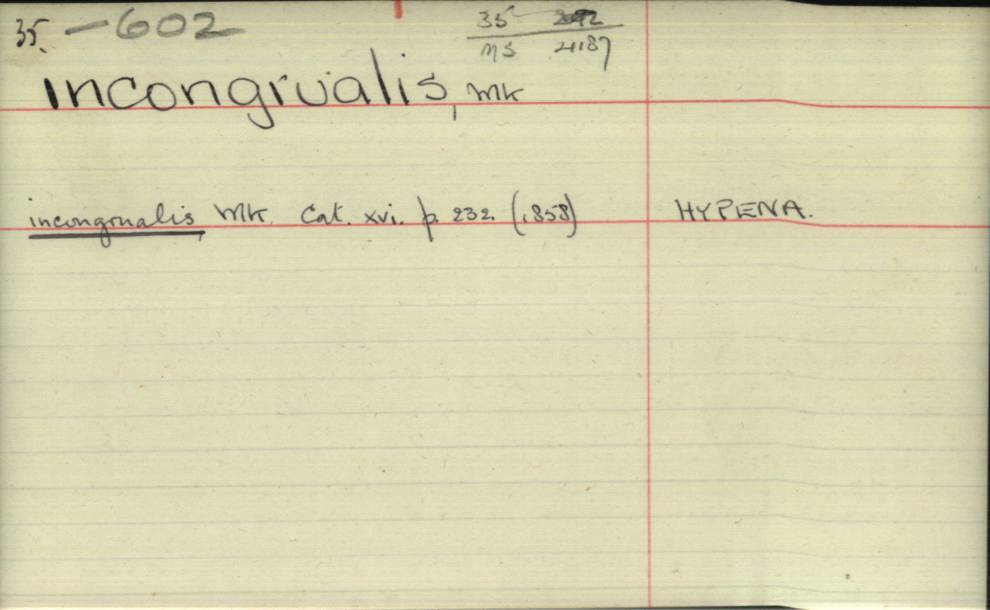 35. — 602
35
MS 4187
incongrualis, Wlk
incongrualis, Wlk. Cat. xvi. p. 232. (1858) HYPENA.